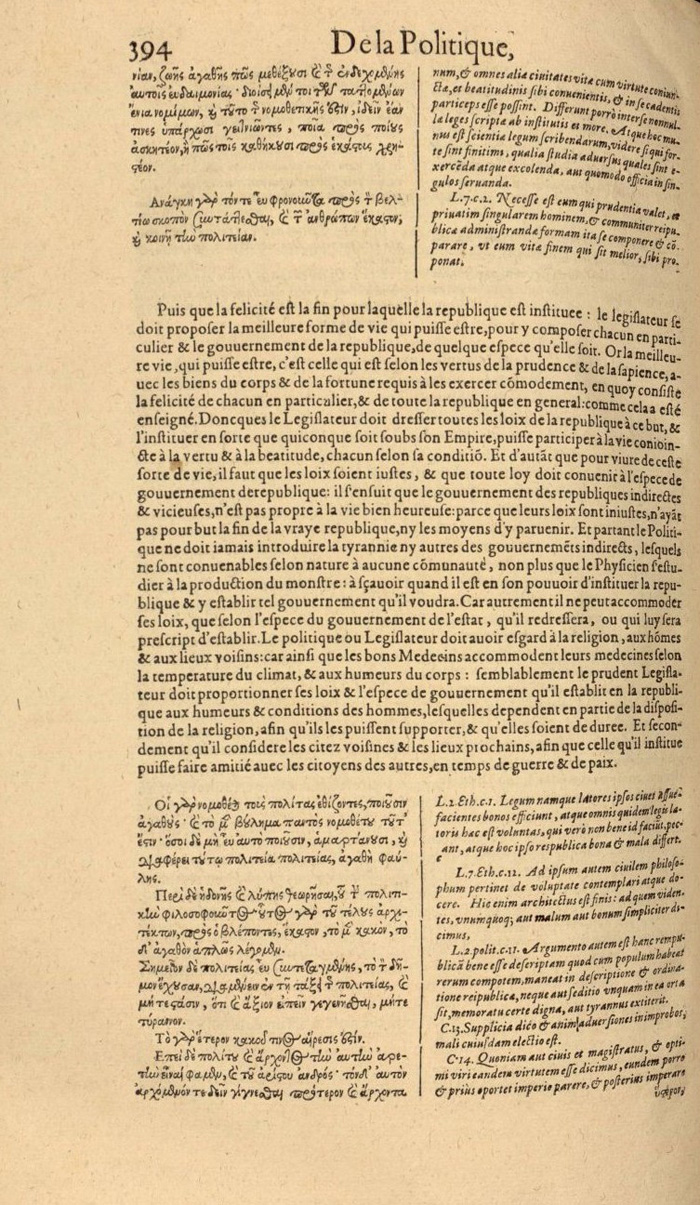 394
De la Politique,
νίαν, ζωῆς ἀγαθῆς πῶς μεθέξουσι καὶ τῆς ἐνδεχομένης
αὐτοῖς εὐδαιμονίας· διοίσει μέντοι τῶν ταττομένων
ἔνια νομίμων, καὶ τοῦτο τῆς νομοθετικῆς ἐστιν, ἰδεῖν ἐάν
τινες ὑπάρχωσι γειτνιῶντες, ποῖα πρὸς ποίους
ἀσκητέον, ἢ πῶς τοῖς καθήκουσι πρὸς ἑκάστους χρη-
στέον.
Ἀνάγκη γὰρ τόν τε εὖ φρονοῦντα πρὸς τὸν βελ-
τίω σκοπὸν συντάττεσθαι, καὶ τῶν ἀνθρώπων ἕκαστον,
καὶ κοινῇ τὴν πολιτείαν.
num, & omnes alia ciuitates vita cum virtute coniun-
cta, et beatitudinis sibi conuenientis, & in se cadentis
participes esse possint. Differunt porro inter se nonnul-
la leges scripta ab institutis et more. Atque hoc mu-
nus est scientia legum scribendarum, videre si qui for-
te sint finitimi, qualia studia aduersus quales sint e-
xercēda atque excolenda, aut quomodo officia in sin-
gulos seruanda.
L.7.c.2. Necesse est eum qui prudentia valet, et
priuatim singularem hominem, & communiter reipu-
blica administranda formam ita se componere & cō-
parare, vt eum vita finem qui sit melior, sibi pro-
ponat.
Puis que la felicité est la fin pour laquelle la republique est instituee : le legislateur se
doit proposer la meilleure forme de vie qui puisse estre, pour y composer chacun en parti-
culier & le gouuernement de la republique, de quelque espece qu'elle soit. Or la meilleu-
re vie, qui puisse estre, c'est celle qui est selon les vertus de la prudence & de la sapience, a-
uec les biens du corps & de la fortune requis à les exercer cōmodement, en quoy consiste
la felicité de chacun en particulier, & de toute la republique en general: comme cela a esté
enseigné. Doncques le Legislateur doit dresser toutes les loix de la republique à ce but, &
l'instituer en sorte que quiconque soit soubs son Empire, puisse participer à la vie conioin-
cte à la vertu & à la beatitude, chacun selon sa conditiō. Et d'autāt que pour viure de ceste
sorte de vie, il faut que les loix soient iustes, & que toute loy doit conuenir à l'espece de
gouuernement de republique: il s'ensuit que le gouuernement des republiques indirectes
& vicieuses, n'est pas propre à la vie bien heureuse: parce que leurs loix sont iniustes, n'ayāt
pas pour but la fin de la vraye republique, ny les moyens d'y paruenir. Et partant le Politi-
que ne doit iamais introduire la tyrannie ny autres des gouuernemēts indirects, lesquels
ne sont conuenables selon nature à aucune cōmunauté, non plus que le Physicien s'estu-
dier à la production du monstre : à sçauoir quand il est en son pouuoir d'instituer la repu-
blique & y establir tel gouuernement qu'il voudra. Car autrement il ne peut accommoder
ses loix, que selon l'espece du gouuernement de l'estat, qu'il redressera, ou qui luy sera
prescript d'establir. Le politique ou Legislateur doit auoir esgard à la religion, aux hōmes
& aux lieux voisins: car ainsi que les bons Medecins accommodent leurs medecines selon
la temperature du climat, & aux humeurs du corps : semblablement le prudent Legisla-
teur doit proportionner ses loix & l'espece de gouuernement qu'il establit en la republi-
que aux humeurs & conditions des hommes, lesquelles dependent en partie de la disposi-
tion de la religion, afin qu'ils les puissent supporter, & qu'elles soient de duree. Et secon-
dement qu'il considere les citez voisines & les lieux prochains, afin que celle qu'il institue
puisse faire amitié auec les citoyens des autres, en temps de guerre & de paix.
Οἱ γὰρ νομοθέται τοὺς πολίτας ἐθίζοντες, ποιοῦσιν
ἀγαθούς· καὶ τὸ μὲν βούλημα παντὸς νομοθέτου τοῦτ'
ἐστίν· ὅσοι δὲ μὴ εὖ αὐτὸ ποιοῦσιν, ἁμαρτάνουσι, καὶ
διαφέρει τούτῳ πολιτεία πολιτείας, ἀγαθὴ φαύ-
λης.
Περὶ δὲ ἡδονῆς καὶ λύπης θεωρῆσαι, τοῦ τὴν πολιτι-
κὴν φιλοσοφοῦντος· οὗτος γὰρ τοῦ τέλους ἀρχι-
τέκτων, πρὸς ὃ βλέποντες, ἕκαστον, τὸ μὲν κακόν, τὸ
δ' ἀγαθὸν ἁπλῶς λέγομεν.
Σημεῖον δὲ πολιτείας εὖ συντεταγμένης, τὸ τὸν δῆ-
μον ἔχουσαν, διαμένειν ἐν τῇ τάξει τῆς πολιτείας, καὶ
μήτε στάσιν, ὅτι καὶ ἄξιον εἰπεῖν γεγενῆσθαι, μήτε
τύραννον.
Τὸ γὰρ ἕτερον κακοῦ τινὸς αἵρεσίς ἐστιν.
Ἐπεὶ δὲ πολίτου καὶ ἄρχοντος τὴν αὐτὴν ἀρε-
τὴν εἶναί φαμεν, καὶ τοῦ ἀρίστου ἀνδρός· τὸν δ' αὐτὸν
ἀρχόμενόν τε δεῖν γίγνεσθαι πρότερον καὶ ἄρχοντα
L.2.Eth.c.1. Legum namque latores ipsos ciues assue-
facientes bonos efficiunt, atque omnis quidem legis la-
toris hac est voluntas, qui vero non bene id faciūt, pec-
ant, atque hoc ipso respublica bona & mala differt.
c
L.7.Eth.c.12. Ad ipsum autem ciuilem philoso-
phum pertinet de voluptate contemplari atque do-
cere. Hic enim architectus est finis: ad quem viden-
tes, vnumquoq; aut malum aut bonum simpliciter di-
cimus,
L.2.polit.c.11. Argumento autem est hanc rempu-
blicā bene esse descriptam quod cum populum habeat
rerum compotem, maneat in descriptione & ordina-
tione reipublica, neque aut seditio vnquam in ea orta
sit, memoratu certe digna, aut tyrannus extiterit.
C.13. Supplicia dico & animaduersiones in improbos,
mali cuiusdam electio est.
C.14. Quoniam aut ciuis et magistratus, & opti-
mi viri eandem virtutem esse dicimus, eundem porro
& prius oportet imperio parere, & posterius imperare
ὕστερον,